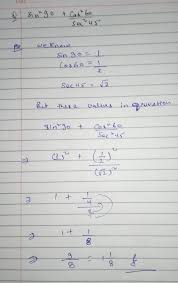 sin²90 + cos²60 / sec²45
we know
sin 90 = 1
cos 60 = 1/2
sec 45 = √2
Put these values in equation
sin²90 + cos²60 / sec²45
⇒ (1)² + (1/2)² / (√2)²
⇒ 1 + 1/4 /
⇒ 1 + 1/8
⇒ 9/8 = 1 1/8